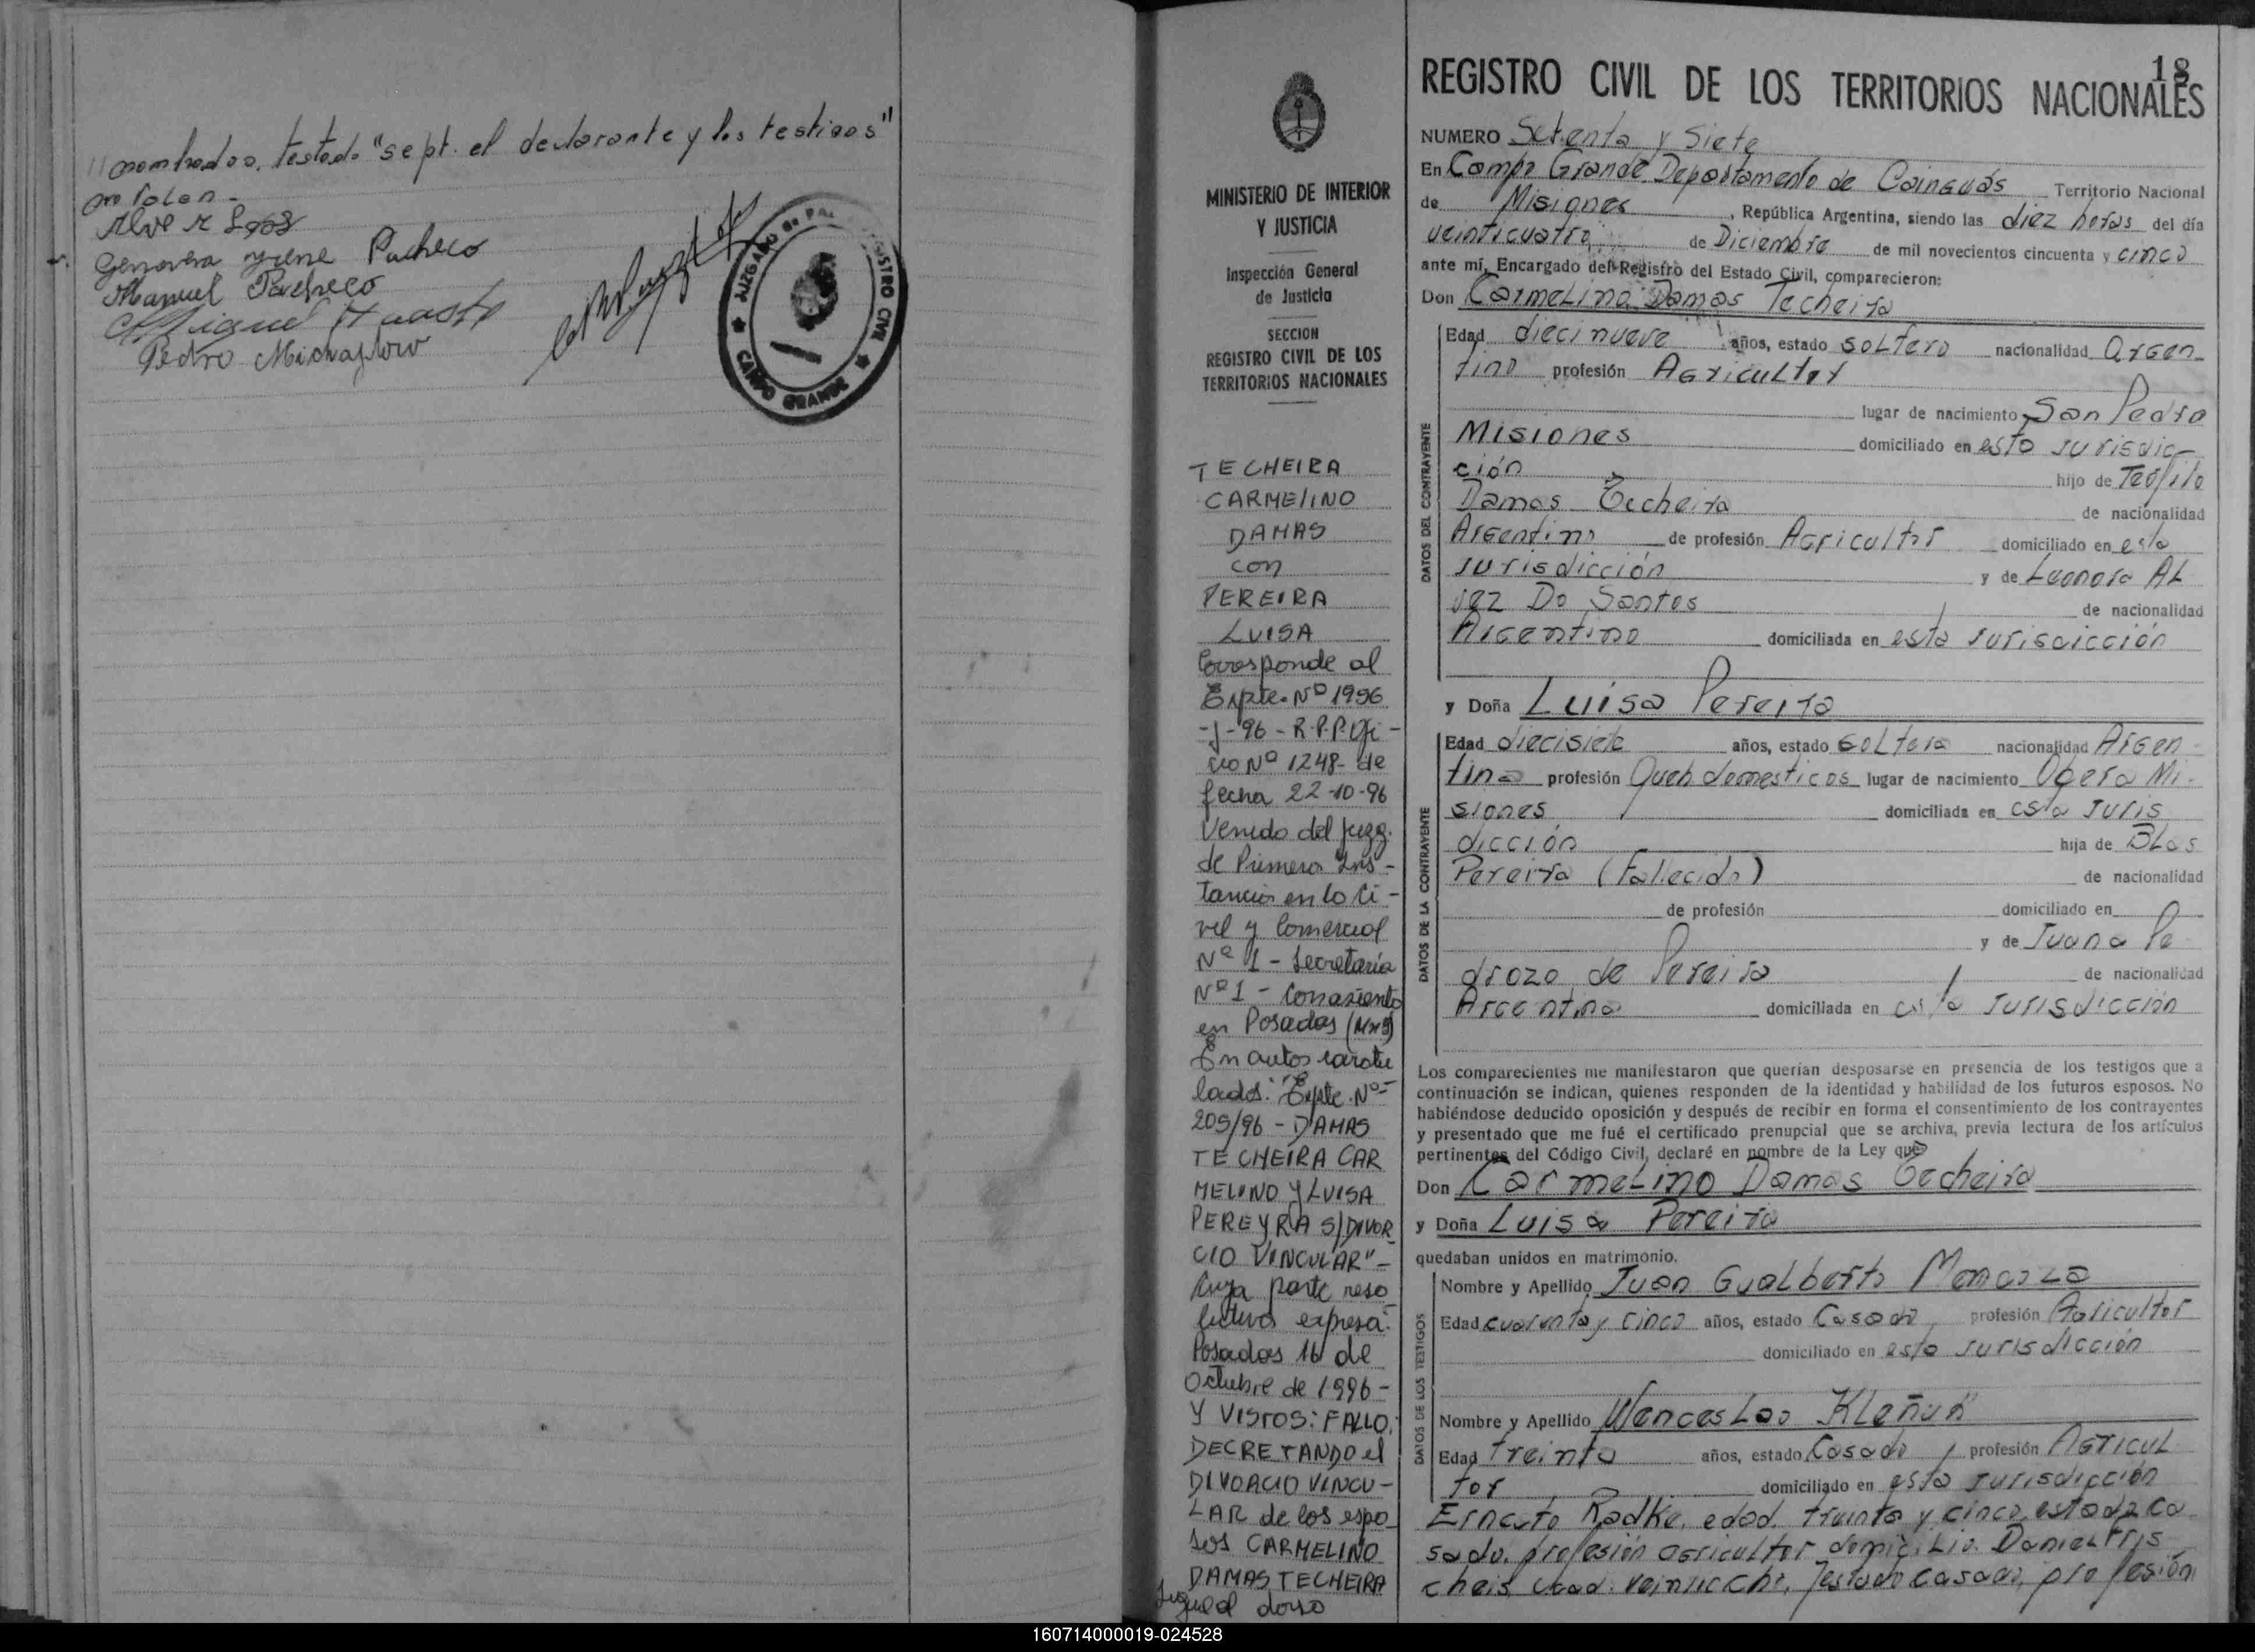 // nombrados. testado "sept. el declarante y los testigos"
no valen -
Genovera yrene Pacheco
Manuel Pacheco
Pedro
JUZGADO DE PAZ REGISTRO CIVIL
CAMPO GRANDE
18
MINISTERIO DE INTERIOR
Y JUSTICIA
Inspección General
de Justicia
SECCION
REGISTRO CIVIL DE LOS
TERRITORIOS NACIONALES
TECHEIRA
CARMELINO
DAMAS
con
PEREIRA
LUISA
Corresponde al
Expte. Nº 1996
-J-96 - R.P.P. Ofi-
cio Nº 1248- de
fecha 22-10-96
Venido del juzg.
de Primera Ins-
tancia en lo Ci-
vil y Comercial
Nº 1 - Secretaría
Nº 1 - Con asiento
en Posadas (Mnes)
En autos caratu
lados: "Expte. Nº-
209/96 - DAMAS
TECHEIRA CAR
MELINO Y LUISA
PEREYRA S/DIVOR
CIO VINCULAR"-
Cuya parte reso
lutiva expresa:
Posadas 16 de
Octubre de 1996-
Y VISTOS: FALLO:
DECRETANDO el
DIVORCIO VINCU-
LAR de los espo
sos CARMELINO
DAMAS TECHEIRA
Sigue al dorso
REGISTRO CIVIL DE LOS TERRITORIOS NACIONALES
NUMERO Setenta y Siete
En Campo Grande Departamento de Cainguás Territorio Nacional
de Misiones, República Argentina, siendo las diez horas del día
veinticuatro de Diciembre de mil novecientos cincuenta y cinco
ante mí, Encargado del Registro del Estado Civil, comparecieron:
Don Carmelino Damas Techeira
DATOS DEL CONTRAYENTE
Edad diecinueve años, estado soltero nacionalidad Argen-
tino profesión Agricultor
lugar de nacimiento San Pedro
Misiones domiciliado en esta jurisdic-
ción hijo de Teófilo
Damas Techeira de nacionalidad
Argentino de profesión Agricultor domiciliado en esta
jurisdicción y de Leonora Al
vez Do Santos de nacionalidad
Argentina domiciliada en esta jurisdicción
y Doña Luisa Pereira
DATOS DE LA CONTRAYENTE
Edad diecisiete años, estado soltera nacionalidad Argen-
tina profesión Queh domesticos lugar de nacimiento Obera Mi-
siones domiciliada en esta juris
dicción hija de Blas
Pereira (Fallecido) de nacionalidad
de profesión domiciliado en
y de Juana Pe
drozo de Pereira de nacionalidad
Argentina domiciliada en esta jurisdicción
Los comparecientes me manifestaron que querían desposarse en presencia de los testigos que a
continuación se indican, quienes responden de la identidad y habilidad de los futuros esposos. No
habiéndose deducido oposición y después de recibir en forma el consentimiento de los contrayentes
y presentado que me fué el certificado prenupcial que se archiva, previa lectura de los artículos
pertinentes del Código Civil, declaré en nombre de la Ley que
Don Carmelino Damas Techeira
y Doña Luisa Pereira
quedaban unidos en matrimonio.
DATOS DE LOS TESTIGOS
Nombre y Apellido Juan Gualberto
Edad cuarenta y cinco años, estado Casado profesión Agricultor
domiciliado en esta jurisdicción
Nombre y Apellido Wenceslao Kleñuk
Edad treinta años, estado Casado profesión Agricul
tor domiciliado en esta jurisdicción
Ernesto Radke, edad treinta y cinco, estado ca
sado, profesión agricultor domicilio. Daniel Fris
cheis, edad: veintiocho, estado casado, profesión
160714000019-024528